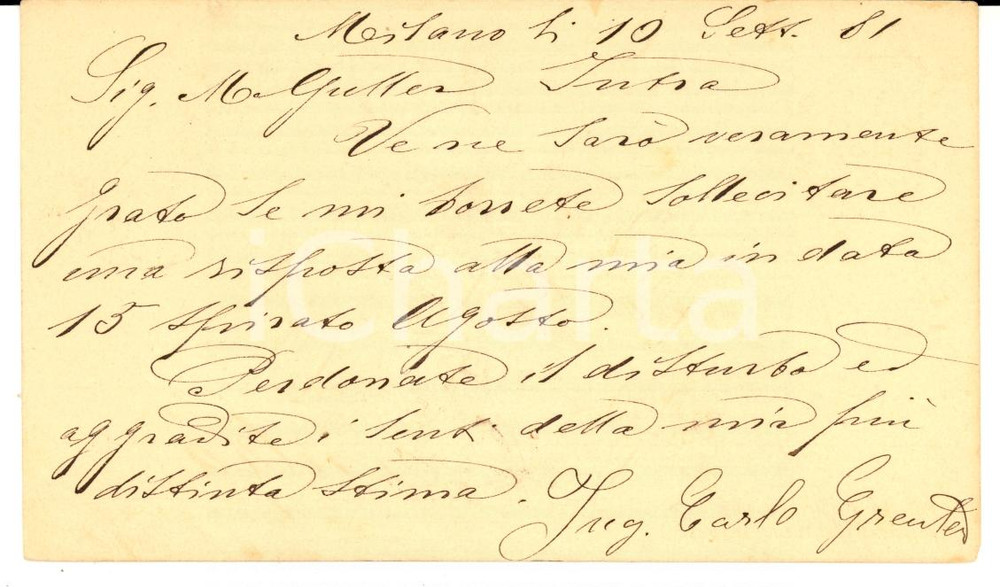 Milano li 10 Sett. 81
Sig. M Gutter Intra
Ve ne sarò veramente
grato se mi vorrete sollecitare
una risposta alla mia in data
15 spirato Agosto.
Perdonate il disturbo ed
aggradite i senti della mia più
distinta stima.
Ing. Carlo
iCharta